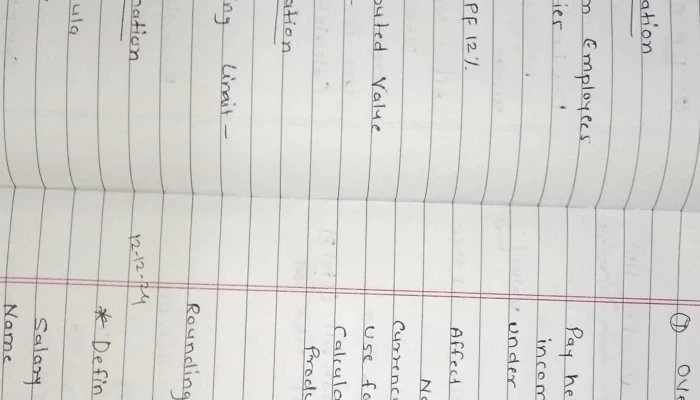 ation
n Employees
ier
PF 12%
puted Value
ation
ng Limit -
nation
ula
⑦ Ove
Pay he
incom
under
Affect
No
Currenc
Use fo
Calcula
Produ
Rounding
12-12-24
* Defin
Salary
Name